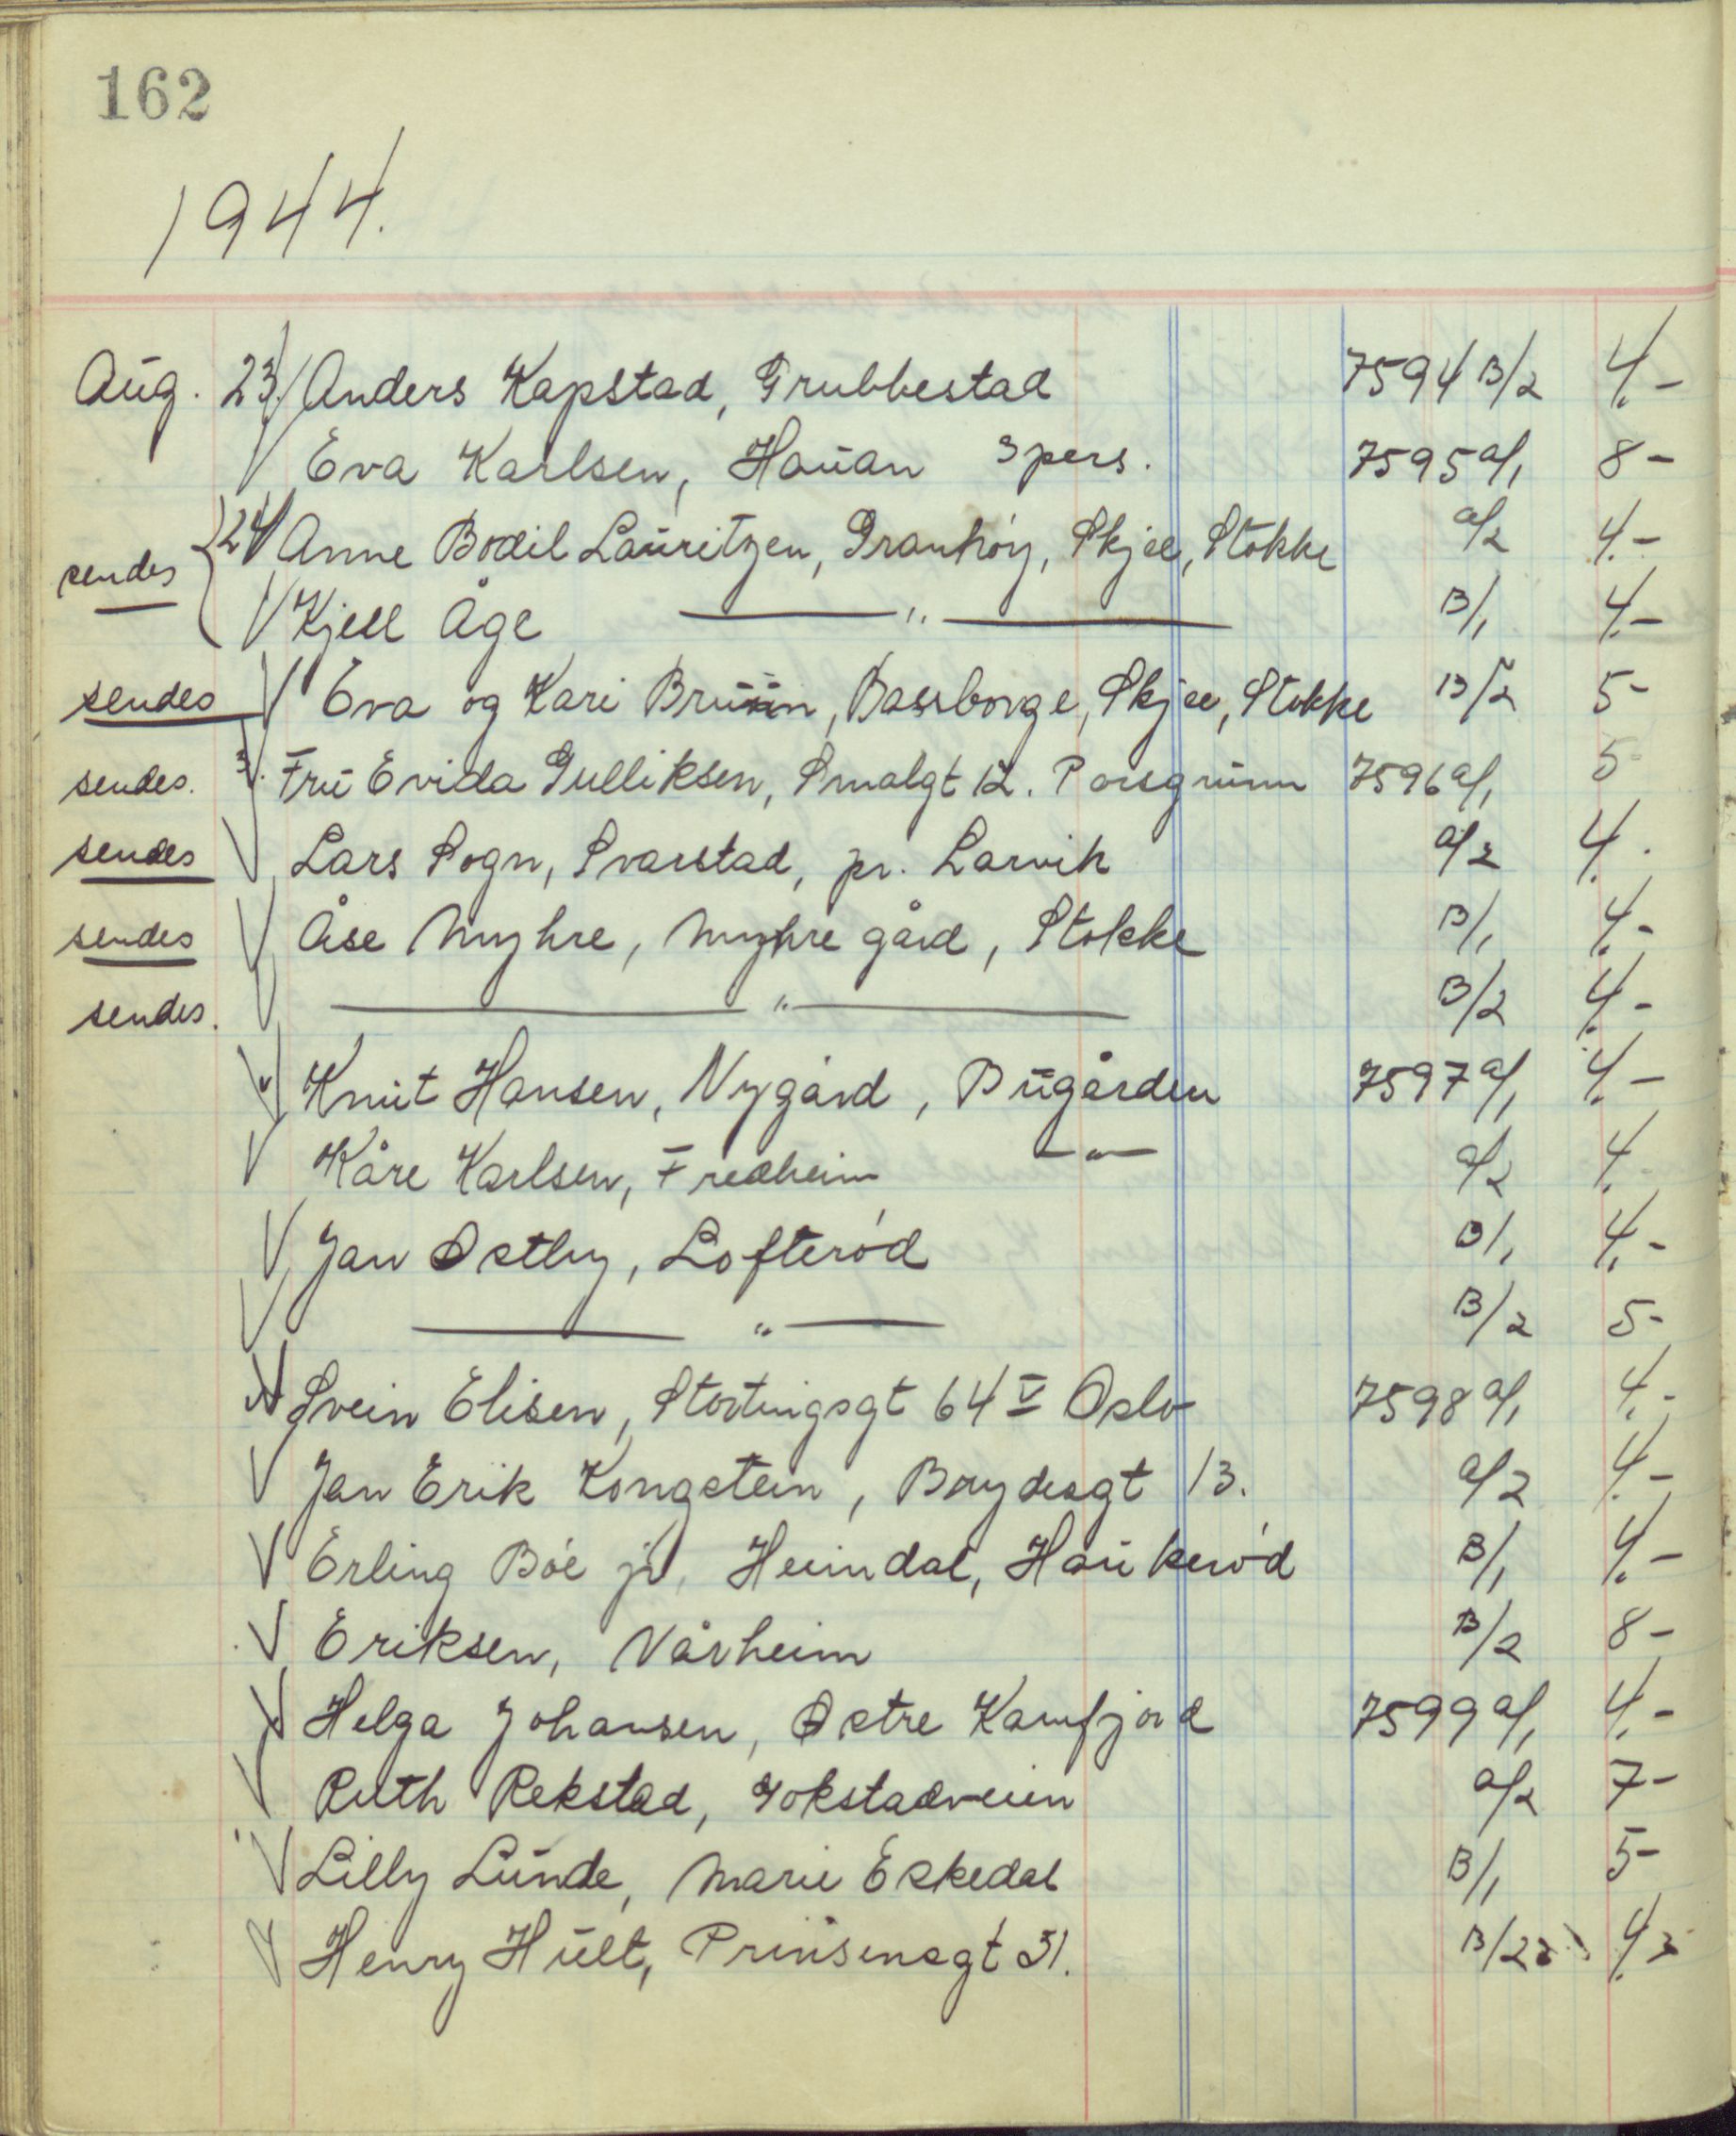 162
1944.
Aug. 23. Anders Kapstad, Grubbestad 7594 B/2 4.-
Eva Karlsen, Hauan 3 pers. 7595 a/1 8 -
sendes 24 Anne Bodil Lauritzen, Granhöy, Skjee, Stokke a/2 4.-
Kjell Åge — " — B/1 4.-
sendes Eva og Kari Bruun, Bassborge, Skjee, Stokke B/2 5-
sendes. Fru Evida Gulliksen, Smalgt 12. Porsgrunn 7596 a/1 5-
sendes Lars Sogn, Svarstad, pr. Larvik a/2 4.
sendes Åse Myhre, Myhre gård, Stokke B/1 4.-
sendes. — " — B/2 4.-
Knut Hansen, Nygård, Bugården 7597 a/1 4.-
Kåre Karlsen, Fredheim — " — a/2 4.
Jan Østby, Lofteród B/1 4.-
— " — B/2 5-
Svein Elisen, Stortingsgt 64 V Oslo 7598 a/1 4.-
Jan Erik Kongstein, Brydesgt 13. a/2 4.-
Erling Bóe jr, Heimdal, Haukeród B/1 4.-
Eriksen, Vårheim B/2 8 -
Helga Johansen, Østre Kamfjord 7599 a/1 4.-
Ruth Rekstad, Gokstadveien a/2 7-
Lilly Lunde, Marie Eskedal B/1 5-
Henry Hult, Prinsensgt 31. B/2 4.